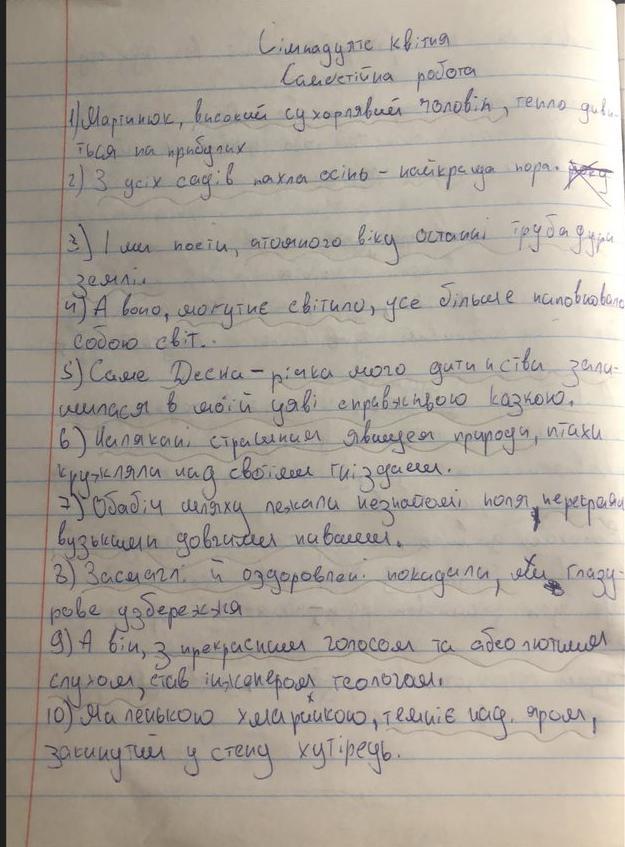 Сімнадцяте квітня
Самостійна робота
1) Мартинюк, високий сухорлявий чоловік, тепло диви-
ться на прибулих
2) З усіх садів пахла осінь – найкраща пора.
3) І ми поети, атомного віку останні трубадури
землі.
4) А воно, могутнє світило, усе більше наповнювало
собою світ.
5) Саме Десна – річка мого дитинства зали-
шилася в моїй уяві справжньою казкою.
6) Налякані страшним явищем природи, птахи
кружляли над своїми гніздами.
7) Обабіч шляху лежали незнайомі поля, перекраяні
вузькими довгими нивами.
8) Засмаглі й оздоровлені покидали, ми глазу-
рове узбережжя
9) А він, з прекрасним голосом та абсолютним
слухом, став інженером геологом.
10) Маленькою хмаринкою, темніє над яром,
закинутий у степу хутірець.